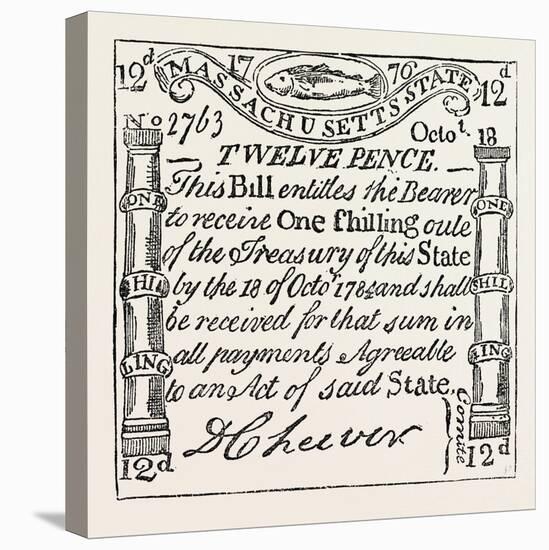 12d 17 76 12d
MASSACHUSETTS STATE
No 2763 Octot. 18
TWELVE PENCE.
This Bill entitles the Bearer
to receive One ſhilling oute
of the Treasury of this State
by the 18 of Octot 1784 and shall
be received for that sum in
all payments Agreeable
to an Act of said State.
ONE
SHIL
LING
ONE
SHIL
LING
DCheever
Comite
12d 12d